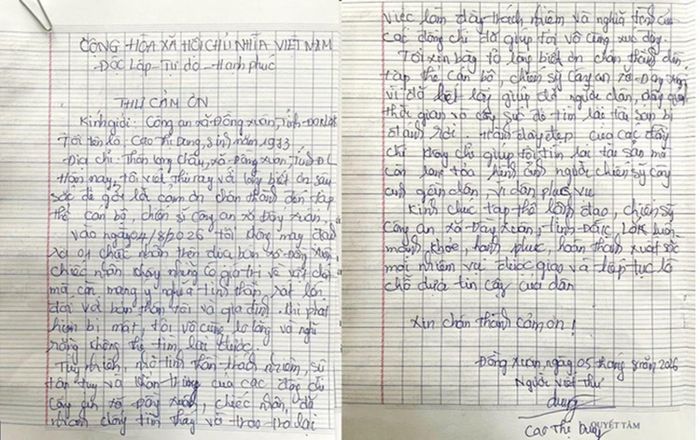 CỘNG HÒA XÃ HỘI CHỦ NGHĨA VIỆT NAM
Độc Lập - Tự do - Hạnh phúc
THƯ CẢM ƠN
Kính gửi: Công an xã Đồng Xuân, Tỉnh Đắk Lắk
Tôi tên là: Cao Thị Dung, sinh năm 1933
Địa chỉ: Thôn Long Châu, xã Đồng Xuân, Tỉnh ĐL
Hôm nay, tôi viết thư này với lòng biết ơn sâu
sắc để gởi lời cảm ơn chân thành đến tập
thể cán bộ, chiến sĩ Công an xã Đồng Xuân.
Vào ngày 04/8/2026 tôi không may đánh
rơi 01 chiếc nhẫn trên địa bàn xã Đồng Xuân,
chiếc nhẫn không những có giá trị về vật chất
mà còn mang ý nghĩa tinh thần rất lớn
đối với bản thân tôi và gia đình. Khi phát
hiện bị mất, tôi vô cùng lo lắng và nghĩ
rằng không thể tìm lại được.
Tuy nhiên, nhờ tinh thần trách nhiệm, sự
tận tụy và khẩn trương của các đồng chí
Công an xã Đồng Xuân, chiếc nhẫn đã
nhanh chóng tìm thấy và trao trả lại
việc làm đầy trách nhiệm và nghĩa tình của
các đồng chí đã giúp tôi vô cùng xúc động.
Tôi xin bày tỏ lòng biết ơn chân thành đến
tập thể cán bộ, chiến sỹ Công an xã Đồng Xuân
vì đã hết lòng giúp đỡ người dân, dành
thời gian và công sức để tìm lại tài sản bị
đánh rơi. Hành động đẹp của các đồng
chí không chỉ giúp tôi tìm lại tài sản mà
còn lan tỏa hình ảnh người chiến sỹ Công
an gần dân vì dân phục vụ
Kính chúc tập thể lãnh đạo, chiến sỹ
Công an xã Đồng Xuân, Tỉnh Đắk Lắk luôn
mạnh khỏe, hạnh phúc, hoàn thành xuất sắc
mọi nhiệm vụ được giao và tiếp tục là
chỗ dựa tin cậy của dân
Xin chân thành cảm ơn!
Đồng Xuân, ngày 05 tháng 8 năm 2026
Người viết thư
Dung
Cao Thị Dung
QUYẾT TÂM